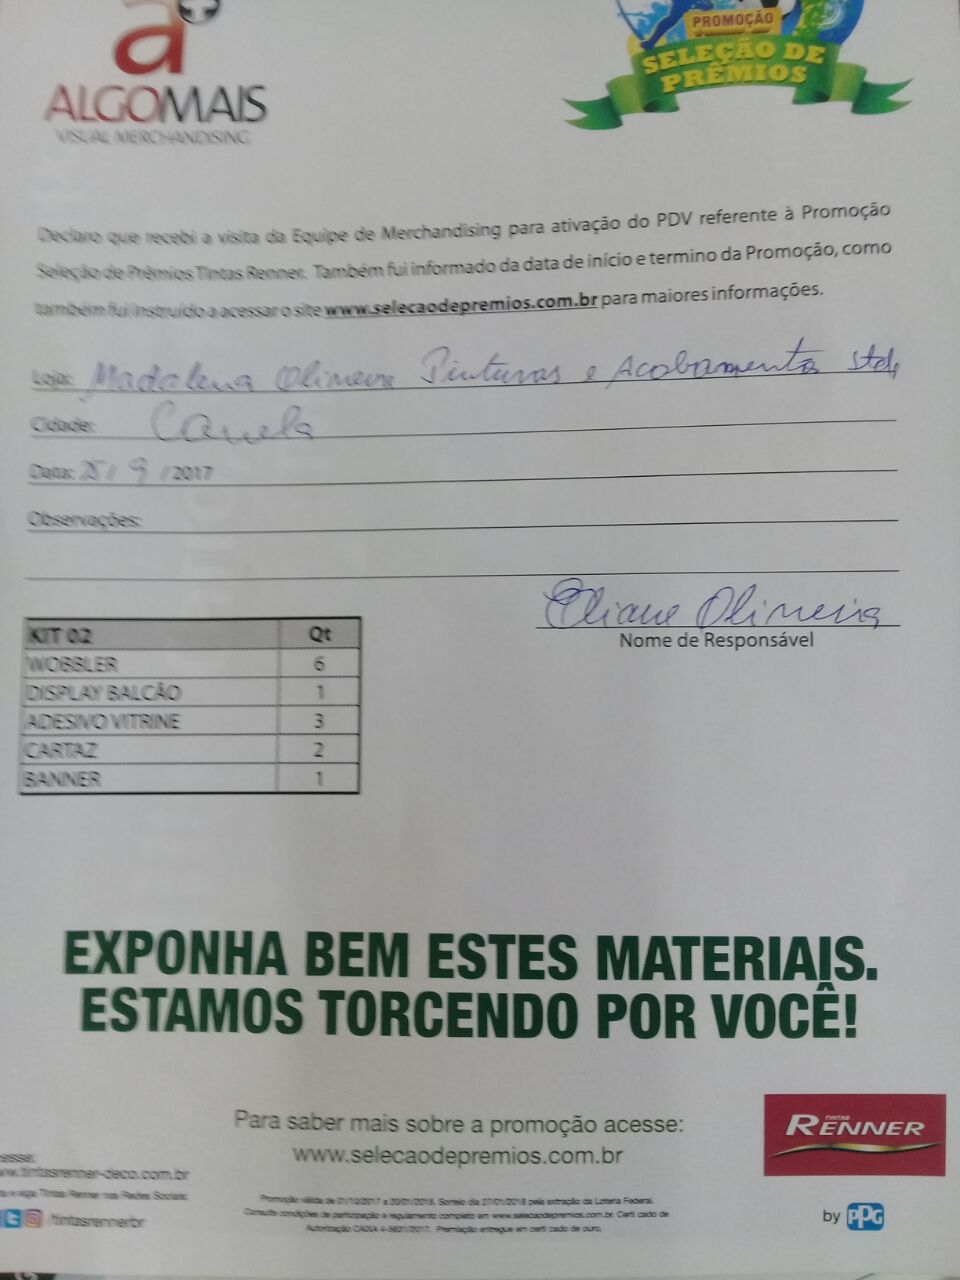 a+
ALGOMAIS
VISUAL MERCHANDISING
PROMOÇÃO
SELEÇÃO DE
PRÊMIOS
Declaro que recebi a visita da Equipe de Merchandising para ativação do PDV referente à Promoção
Seleção de Prêmios Tintas Renner. Também fui informado da data de início e termino da Promoção, como
também fui instruído a acessar o site www.selecaodepremios.com.br para maiores informações.
Loja: Madalena Oliveira Pinturas e Acabamento Ltd,
Cidade: Canela
Data: /9/2017
Observações:
Eliane Oliveira
Nome de Responsável
KIT 02 Qt
WOBBLER 6
DISPLAY BALCÃO 1
ADESIVO VITRINE 3
CARTAZ 2
BANNER 1
EXPONHA BEM ESTES MATERIAIS.
ESTAMOS TORCENDO POR VOCÊ!
Para saber mais sobre a promoção acesse:
www.selecaodepremios.com.br
TINTAS
RENNER
by PPG
esse:
w.tintasrenner-deco.com.br
ta e siga Tintas Renner nas Redes Sociais:
/tintasrennerbr
Promoção válida de 21/10/2017 a 20/01/2018. Sorteio dia 27/01/2018 pela extração da Loteria Federal.
Consulte condições de participação e regulamento completo em www.selecaodepremios.com.br. Certi cado de
Autorização CAIXA Premiação entregue em certi cado de ouro.